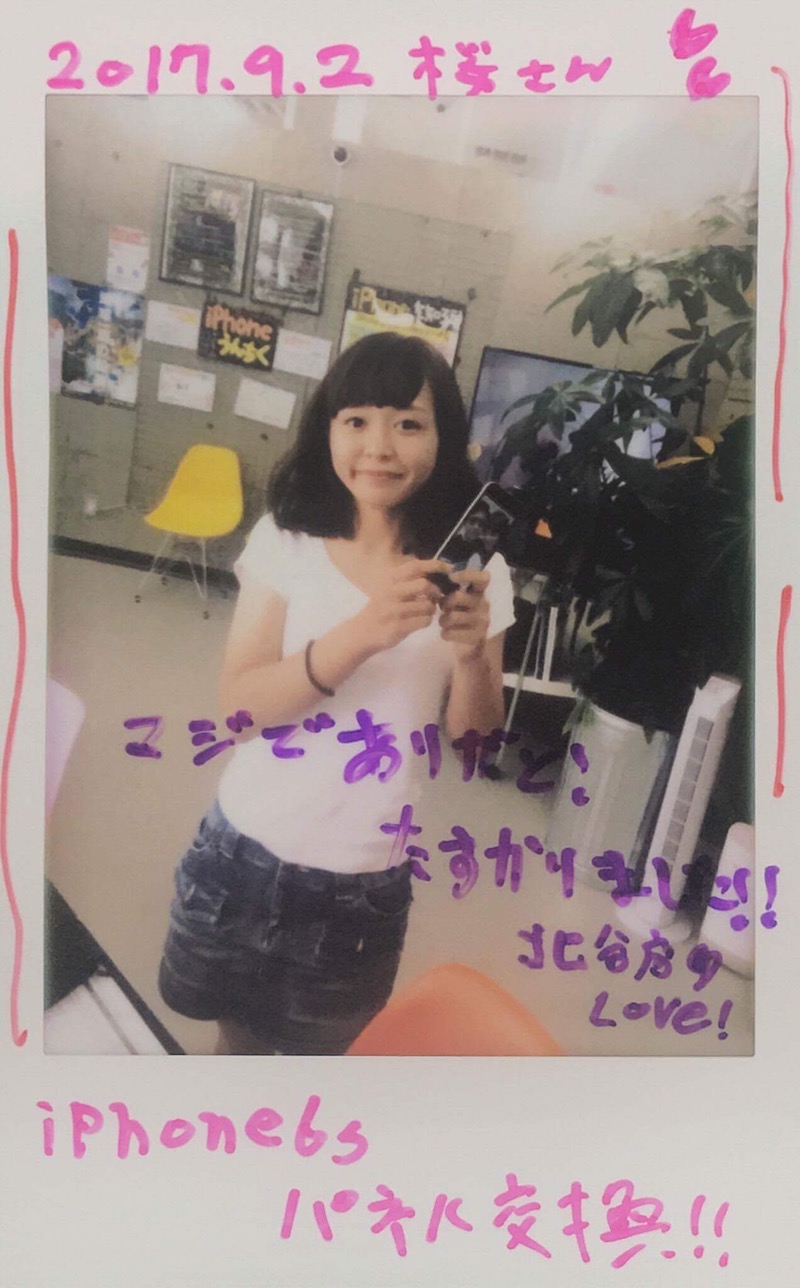 2017.9.2 桜さん
iPhone
うんちく
iPhone
マジでありがと!
たすかりました!!
北谷店の
Love!
iPhone6s
パネル交換!!